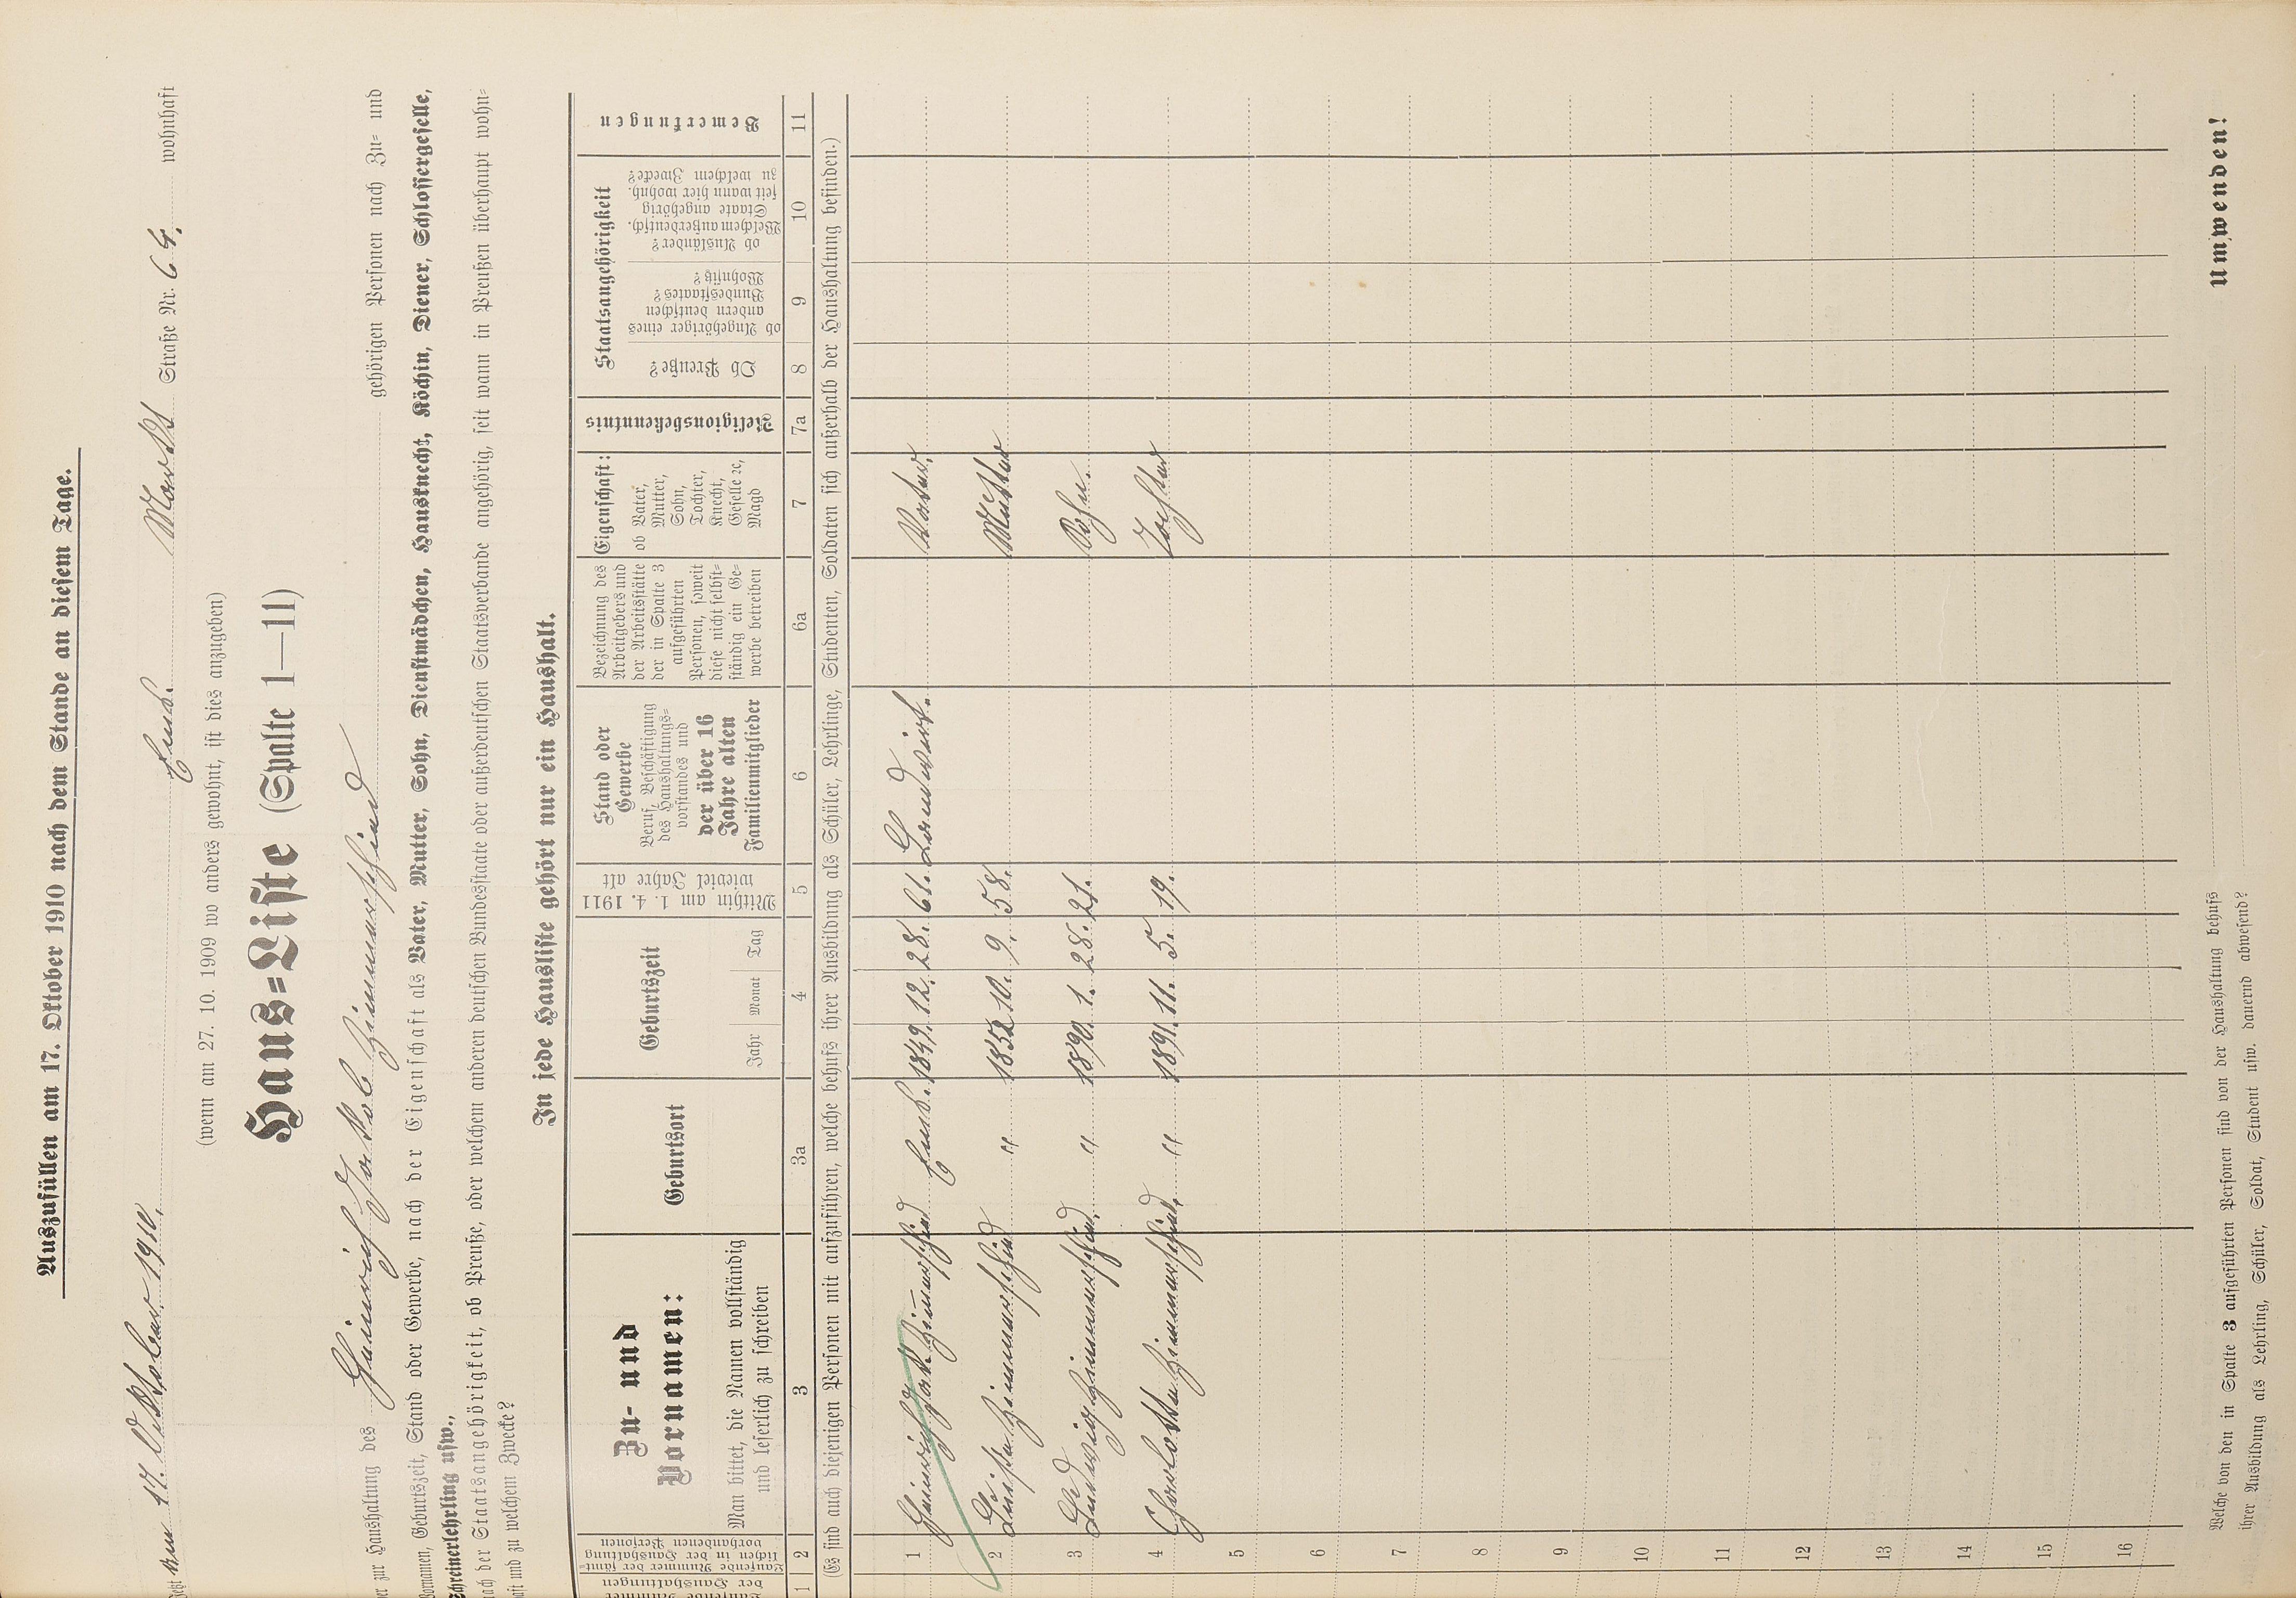 Auszufüllen am 17. Oktober 1910 nach dem Stande an diesem Tage.
jetzt am 17. Oktober 1910. Ems. Markt Straße Nr. 64. wohnhaft
(wenn am 27. 10. 1909 wo anders gewohnt, ist dies anzugeben)
Haus=Liste (Spalte 1—11)
er zur Haushaltung des Heinrich Jakob Zimmerschied gehörigen Personen nach Zu= und
Vornamen, Geburtszeit, Stand oder Gewerbe, nach der Eigenschaft als Vater, Mutter, Sohn, Dienstmädchen, Hausknecht, Köchin, Diener, Schlossergeselle,
Schreinerlehrling usw.,
nach der Staatsangehörigkeit, ob Preuße, oder welchem anderen deutschen Bundesstaate oder außerdeutschen Staatsverbande angehörig, seit wann in Preußen überhaupt wohn=
haft und zu welchem Zwecke?
In jede Hausliste gehört nur ein Haushalt.
Laufende Nummer
der Haushaltungen
Laufende Nummer der sämt=
lichen in der Haushaltung
vorhandenen Personen
Zu- und
Vornamen:
Man bittet, die Namen vollständig
und leserlich zu schreiben
Geburtsort
Geburtszeit
Jahr Monat Tag
Mithin am 1. 4. 1911
wieviel Jahre alt
Stand oder
Gewerbe
Beruf, Beschäftigung
des Haushaltungs=
vorstandes und
der über 16
Jahre alten
Familienmitglieder
Bezeichnung des
Arbeitgebers und
der Arbeitsstätte
der in Spalte 3
aufgeführten
Personen, soweit
diese nicht selbst=
ständig ein Ge=
werbe betreiben
Eigenschaft:
ob Vater,
Mutter,
Sohn,
Tochter,
Knecht,
Geselle ꝛc,
Magd
Religionsbekenntnis
Staatsangehörigkeit
Ob Preuße?
ob Angehöriger eines
andern deutschen
Bundesstaates?
Wohnsitz?
ob Ausländer?
Welchem außerdeutsch.
Staate angehörig
seit wann hier wohnh.
zu welchem Zwecke?
Bemerkungen
1 2 3 3a 4 5 6 6a 7 7a 8 9 10 11
(Es sind auch diejenigen Personen mit aufzuführen, welche behufs ihrer Ausbildung als Schüler, Lehrlinge, Studenten, Soldaten sich außerhalb der Haushaltung befinden.)
1 Heinrich Jak. Zimmerschied Ems. 1849. 12. 28. 61. Landwirt. Vater.
2 Luise Zimmerschied " 1852 10. 9. 58. Mutter
3 Ludwig Zimmerschied. " 1890. 1. 28. 21. Sohn.
4 Charlotte Zimmerschied. " 1891. 11. 5. 19. Tochter
5
6
7
8
9
10
11
12
13
14
15
16
Welche von den in Spalte 3 aufgeführten Personen sind von der Haushaltung behufs
ihrer Ausbildung als Lehrling, Schüler, Soldat, Student usw. dauernd abwesend?
Umwenden!